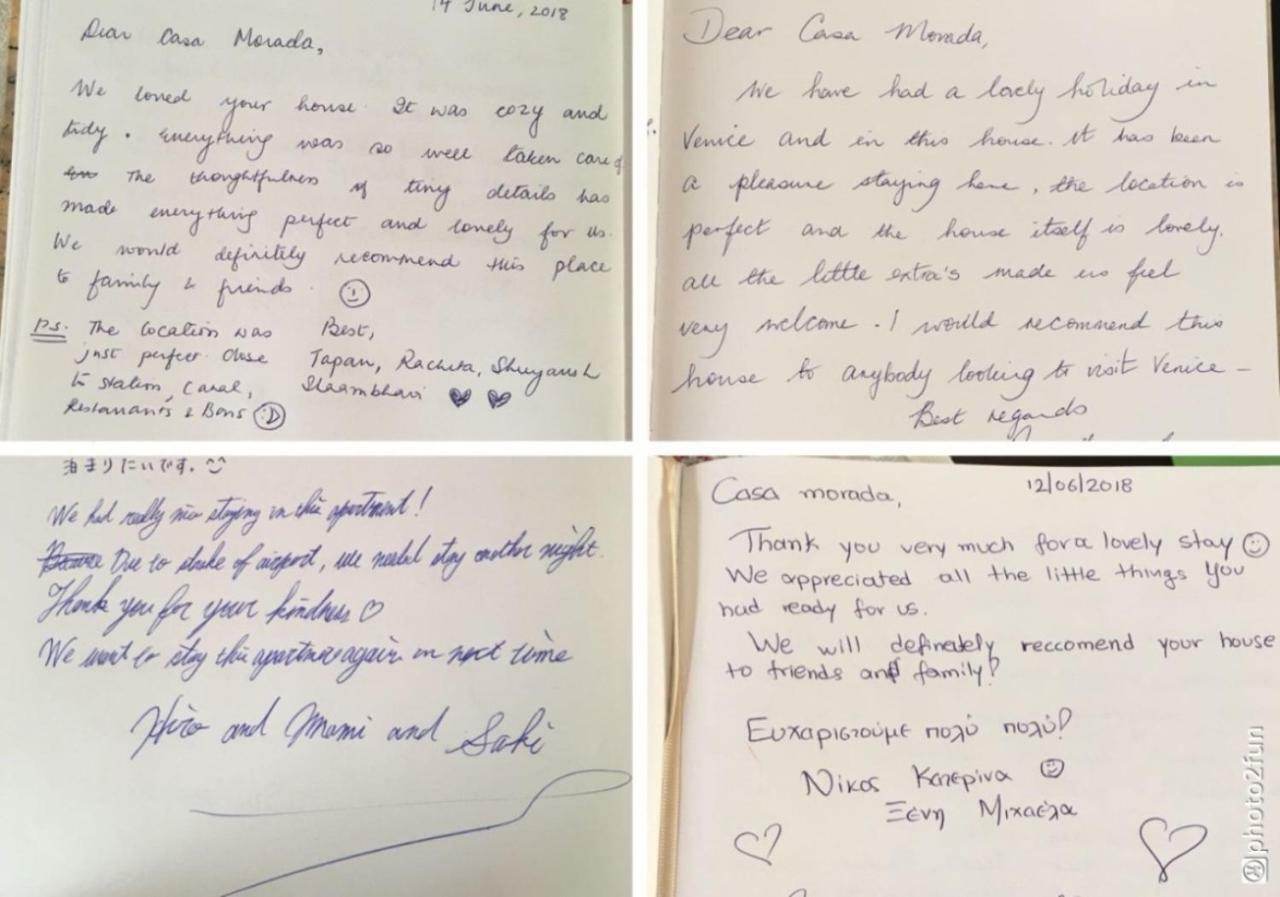 14 June, 2018
Dear Casa Morada,
We loved your house. It was cozy and
tidy. Everything was so well taken care of
The thoughtfulness of tiny details has
made everything perfect and lovely for us.
We would definitely recommend this place
to family & friends.
P.S. The location was
just perfect. Close
to station, Canal,
Restaurants & Bars
Best,
Tapan, Racheta, Shreyansh
Shaambhavi
Dear Casa Morada,
We have had a lovely holiday in
Venice and in this house. It has been
a pleasure staying here, the location is
perfect and the house itself is lovely.
all the little extra's made us feel
very welcome. I would recommend this
house to anybody looking to visit Venice –
Best regards
泊まりたいです。
We had really nice staying in this apartment!
Due to strike of airport, we needed stay another night.
Thank you for your kindness ♡
We want to stay this apartment again in next time
Hiro and Mami and Saki
Casa morada,
12/06/2018
Thank you very much for a lovely stay ☺
We appreciated all the little things you
had ready for us.
We will definately reccomend your house
to friends and family!
Ευχαριστούμε πολύ πολύ!
Νίκος Κατερίνα ☺
Ξένη Μιχαέλα
photo2fun